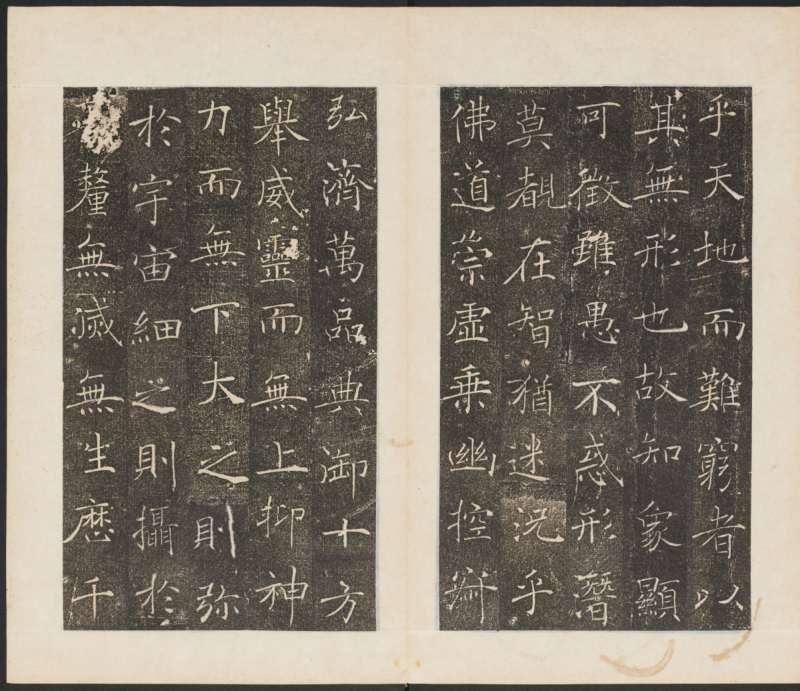 乎天地而難窮者以
其無形也故知象顯
可徵雖愚不惑形潛
莫覩在智猶迷況乎
佛道崇虛乗幽控
弘濟萬品典御十方
舉威靈而無上抑神
力而無下大之則弥
於宇宙細之則攝於
釐無滅無生歷千